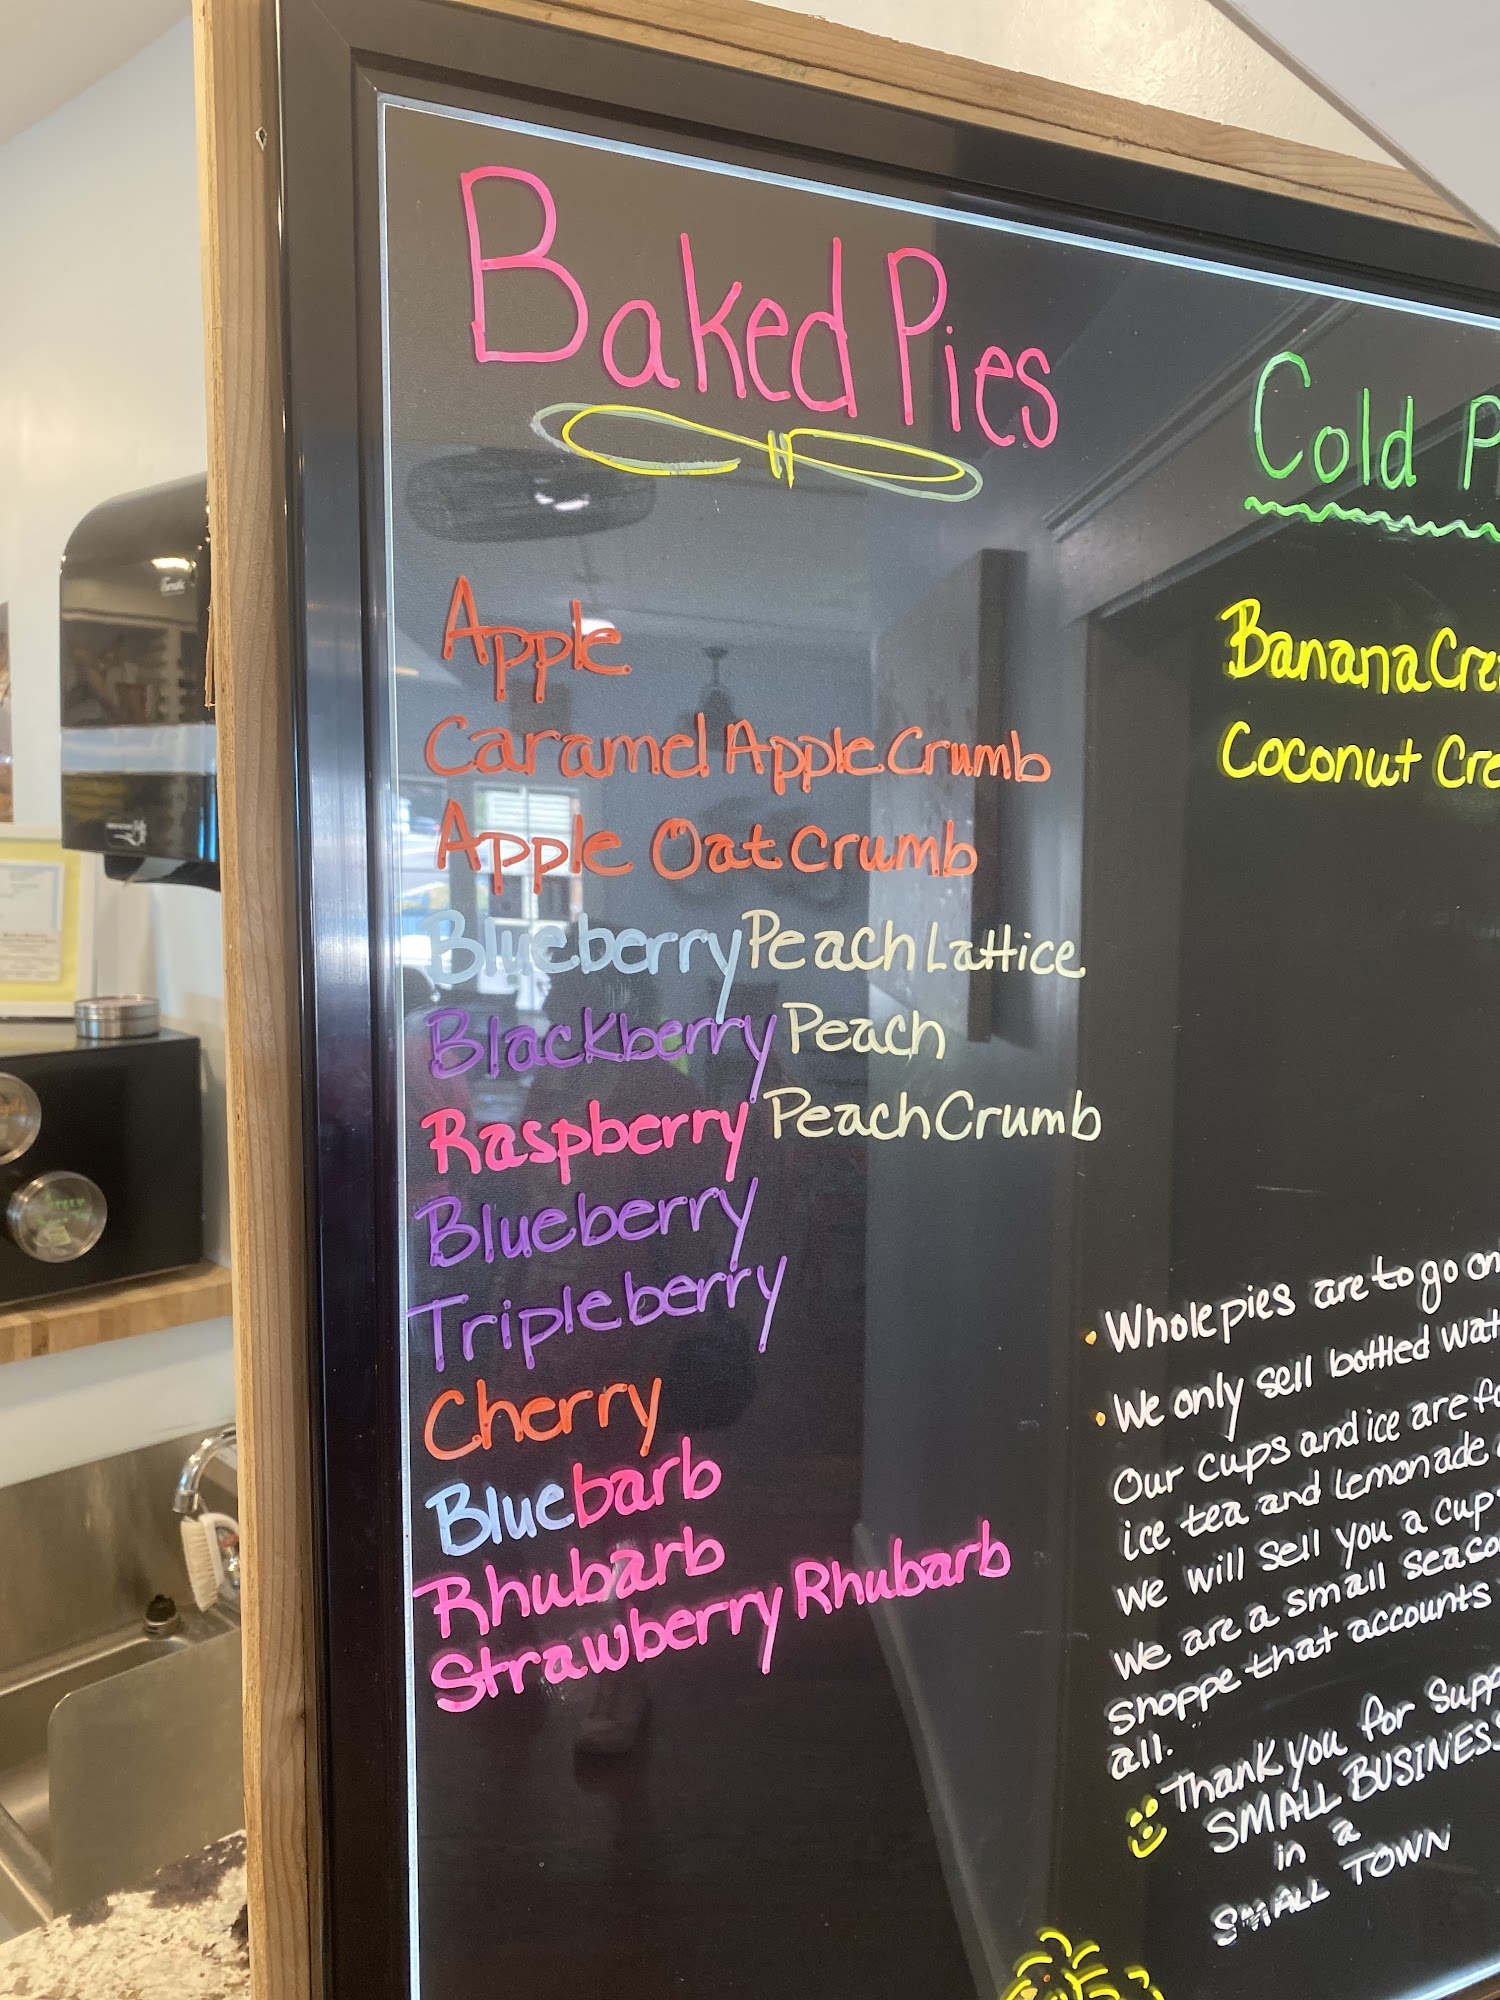 Baked Pies
Apple
Caramel Apple Crumb
Apple Oat Crumb
Blueberry Peach Lattice
Blackberry Peach
Raspberry Peach Crumb
Blueberry
Tripleberry
Cherry
Bluebarb
Rhubarb
Strawberry Rhubarb
Cold
Banana
Coconut
• Whole pies are to go
• We only sell bottled
Our cups and ice are
ice tea and lemonade
We will sell you a cup
We are a small
Shoppe that accounts
all.
Thank you for
SMALL BUSINESS
in a
SMALL TOWN